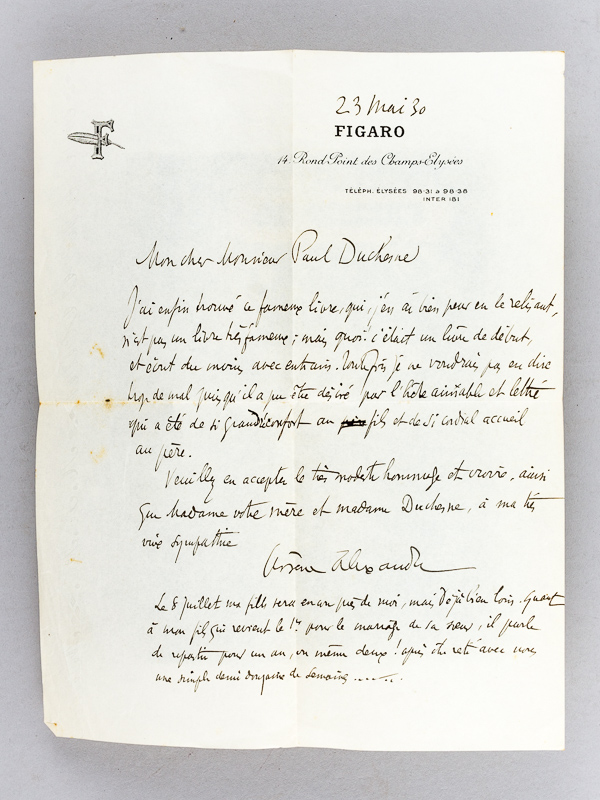 23 Mai 30
F
FIGARO
14. Rond-Point des Champs-Elysées
TÉLÉPH. ÉLYSÉES 98-31 à 98-38
INTER 181
Mon cher Monsieur Paul Duchesne
J'ai enfin trouvé ce fameux livre, qui, j'en ai bien peur en le relisant,
n'est pas un livre très fameux ; mais quoi ! c'était un livre de début,
et écrit du moins avec entrain. Toutefois je ne voudrais pas en dire
trop de mal puisqu'il a pu être désiré par l'hôte aimable et lettré
qui a été de si grand réconfort au fils et de si cordial accueil
au père.
Veuillez en accepter le très modeste hommage et croire, ainsi
que Madame votre mère et madame Duchesne, à ma très
vive sympathie
Arsène Alexandre
Le 8 juillet ma fille sera en un pas de moi, mais déjà bien loin. Quant
à mon fils qui revient le 1er pour le mariage de sa sœur, il parle
de repartir pour un an, ou même deux ! après être resté avec nous
une simple demi douzaine de semaines ......